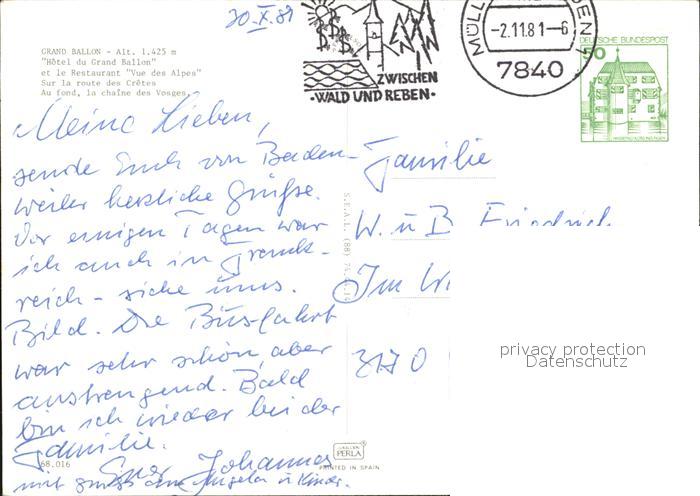 30.X.81
ZWISCHEN
·WALD UND REBEN·
MÜLL
-2.11.81-6
7840
DEUTSCHE BUNDESPOST
50
GRAND BALLON - Alt. 1.425 m
"Hôtel du Grand Ballon"
et le Restaurant "Vue des Alpes"
Sur la route des Crêtes
Au fond, la chaîne des Vosges.
Meine Lieben,
sende Euch von Baden-
weiler herzliche Grüße.
Vor einigen Tagen war
ich auch in Frank-
reich - siehe ums.
Bild. Die Busfahrt
war sehr schön, aber
anstrengend. Bald
bin ich wieder bei der
Familie.
Euer Johannes
mit Angela u. Kinder.
Familie
W. u B Friedrich
Im
3170
S.P.A.D.E.M.
68.016
PERLA
PRINTED IN SPAIN
privacy protection
Datenschutz